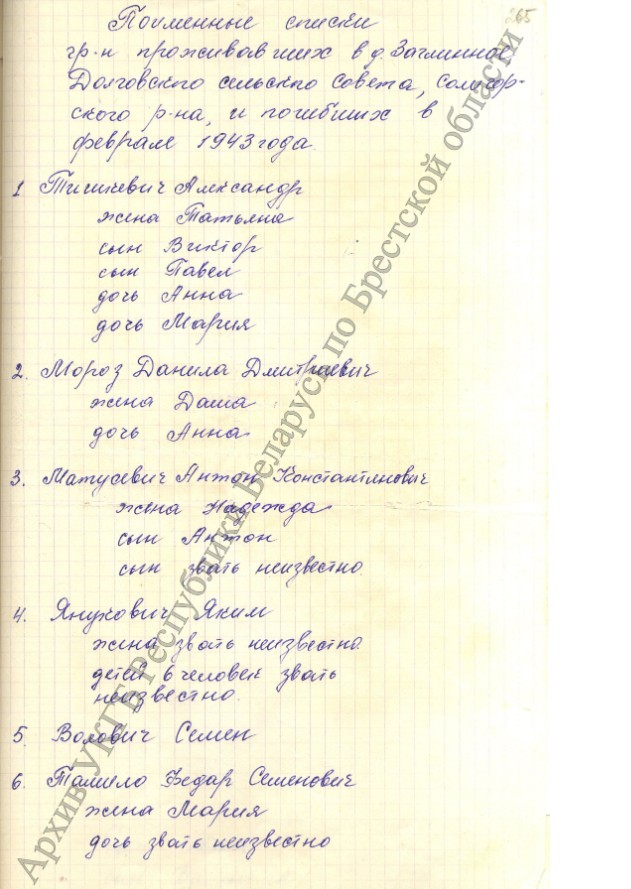 265
Поименные списки
гр-н проживавших в д. Загминная
Долговского сельского совета, Солигор-
ского р-на, и погибших в
феврале 1943 года.
1 Тишкевич Александр
жена Татьяна
сын Виктор
сын Павел
дочь Анна
дочь Мария
2. Мороз Данила Дмитриевич
жена Даша
дочь Анна
3. Матусевич Антон Константинович
жена Надежда
сын Антон
сын звать неизвестно
4. Янукович Яким
жена звать неизвестно
детей 6 человек звать
неизвестно.
5. Волович Семен
6. Талило Федар Семенович
жена Мария
дочь звать неизвестно
Архив УКГБ Республики Беларусь по Брестской области